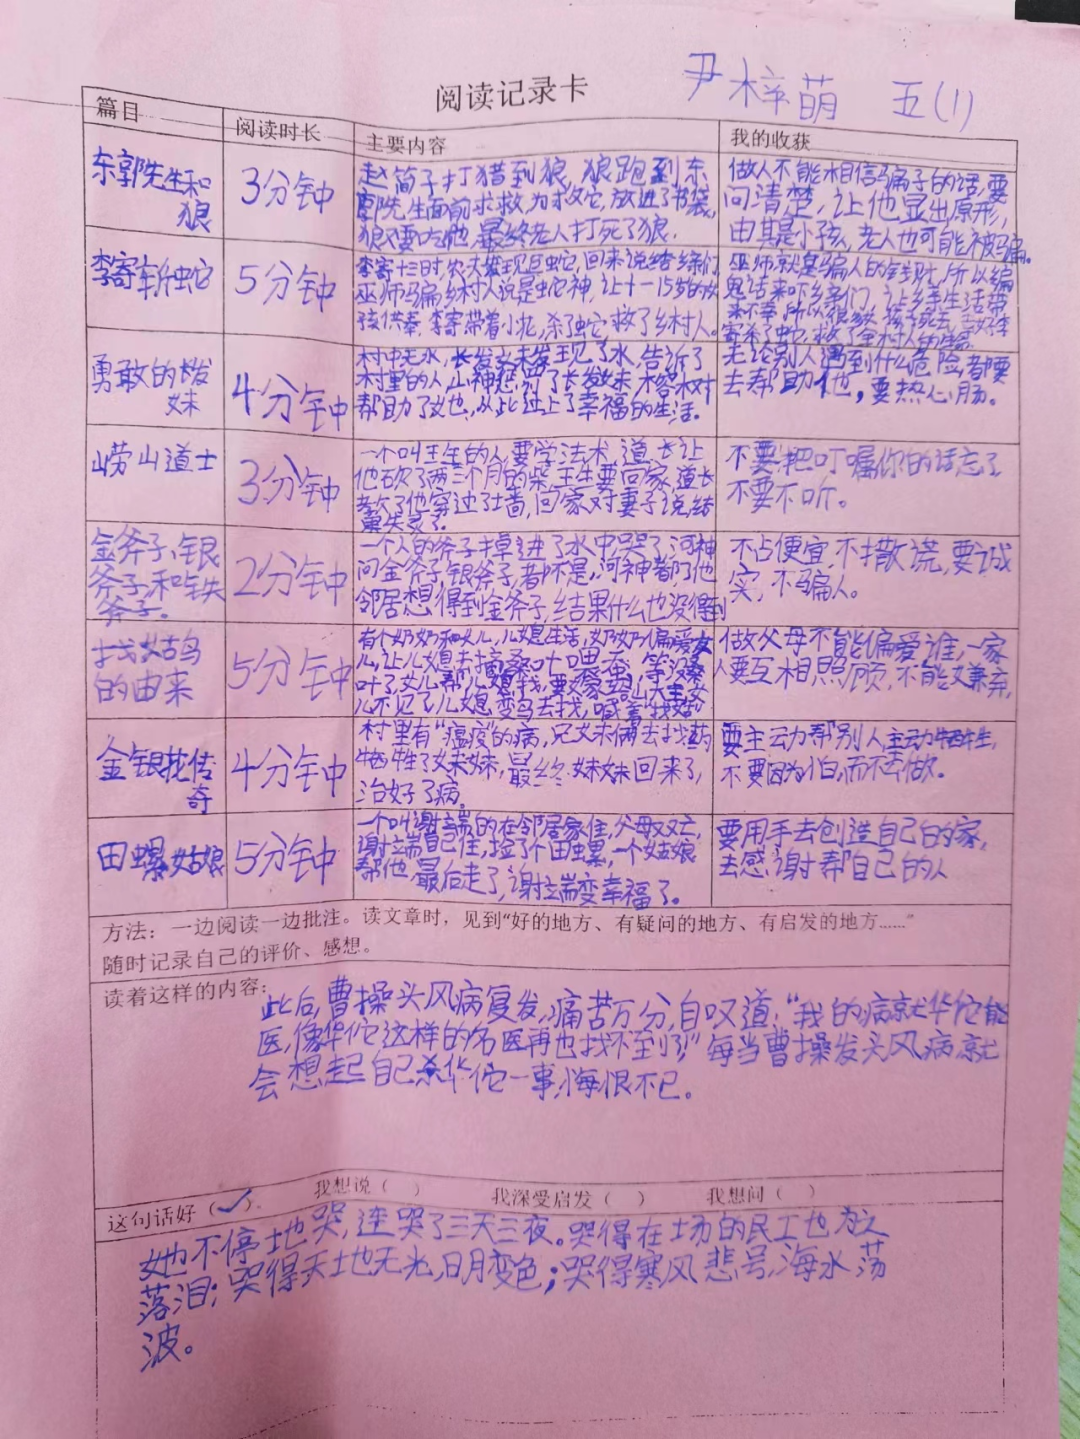 阅读记录卡 尹梓萌 五(1)
篇目 阅读时长 主要内容 我的收获
东郭先生和狼
3分钟
赵简子打猎到狼,狼跑到东
郭先生面前求救,为求救它,放进了书袋,
狼还要吃他,最终老人打死了狼.
做人不能相信骗子的话,要
问清楚,让他显出原形,
由其是小孩,老人也可能被骗。
李寄斩蛇
5分钟
李寄十三时,农夫发现巨蛇,回来说给乡亲们
巫师骗乡村人说是蛇神,让十一15岁的女
孩供奉,李寄带着小批,杀了蛇,救了乡村人。
巫师就是骗人的,所以编
鬼话来吓乡亲们,让乡亲生活带
来不幸,所以很多孩子死去,
寄杀了蛇,救了全村人的生命
勇敢的长发
妹
4分钟
村中无水,长发妹发现了水,告诉了
村里的人,山神惩罚了长发妹,榕树
帮助了她,从此过上了幸福的生活。
无论别人遇到什么危险,都要
去帮助他,要热心肠。
崂山道士
3分钟
一个叫王生的人,要学法术,道长让
他砍了两三个月的柴,王生要回家,道长
教了他穿过了墙,回家对妻子说,结
果失灵了。
不要把叮嘱你的话忘了
不要不听。
金斧子、银
斧子和铁
斧子.
2分钟
一个人的斧子掉进了水中哭了,河神
问金斧子,银斧子,都不是,河神都给了他
邻居想得到金斧子,结果什么也没得到
不占便宜,不撒谎,要诚
实,不骗人。
找姑鸟
的由来
5分钟
有个奶奶和女儿,儿媳生活,奶奶偏爱女
儿,让儿媳去摘桑叶喂蚕,等没桑
叶了,女儿帮儿媳找,要嫁给山大王,女
儿不见了,儿媳变鸟去找,喊着“找姑”
做父母不能偏爱谁,一家
人要互相照顾,不能嫌弃,
金银花传
奇
4分钟
村里有“瘟疫”的病,兄妹俩去找药
牺牲了妹妹,最终妹妹回来了,
治好了病。
要主动帮别人,主动牺牲,
不要因为怕,而不去做。
田螺姑娘
5分钟
一个叫谢端的在邻居家住,父母双亡,
谢端自己住,捡了个田螺,一个姑娘
帮他,最后走了,谢端变幸福了。
要用手去创造自己的家,
去感谢帮自己的人
方法:一边阅读一边批注。读文章时,见到“好的地方、有疑问的地方、有启发的地方……”
随时记录自己的评价、感想。
读着这样的内容:
此后,曹操头风病复发,痛苦万分,自叹道:“我的病就华佗能
医,像华佗这样的名医再也找不到了!”每当曹操发头风病就
会想起自己杀华佗一事,悔恨不已。
这句话好(✓) 我想说( ) 我深受启发( ) 我想问( )
她不停地哭,连哭了三天三夜。哭得在场的民工也为之
落泪;哭得天地无光,日月变色;哭得寒风悲号,海水荡
波。